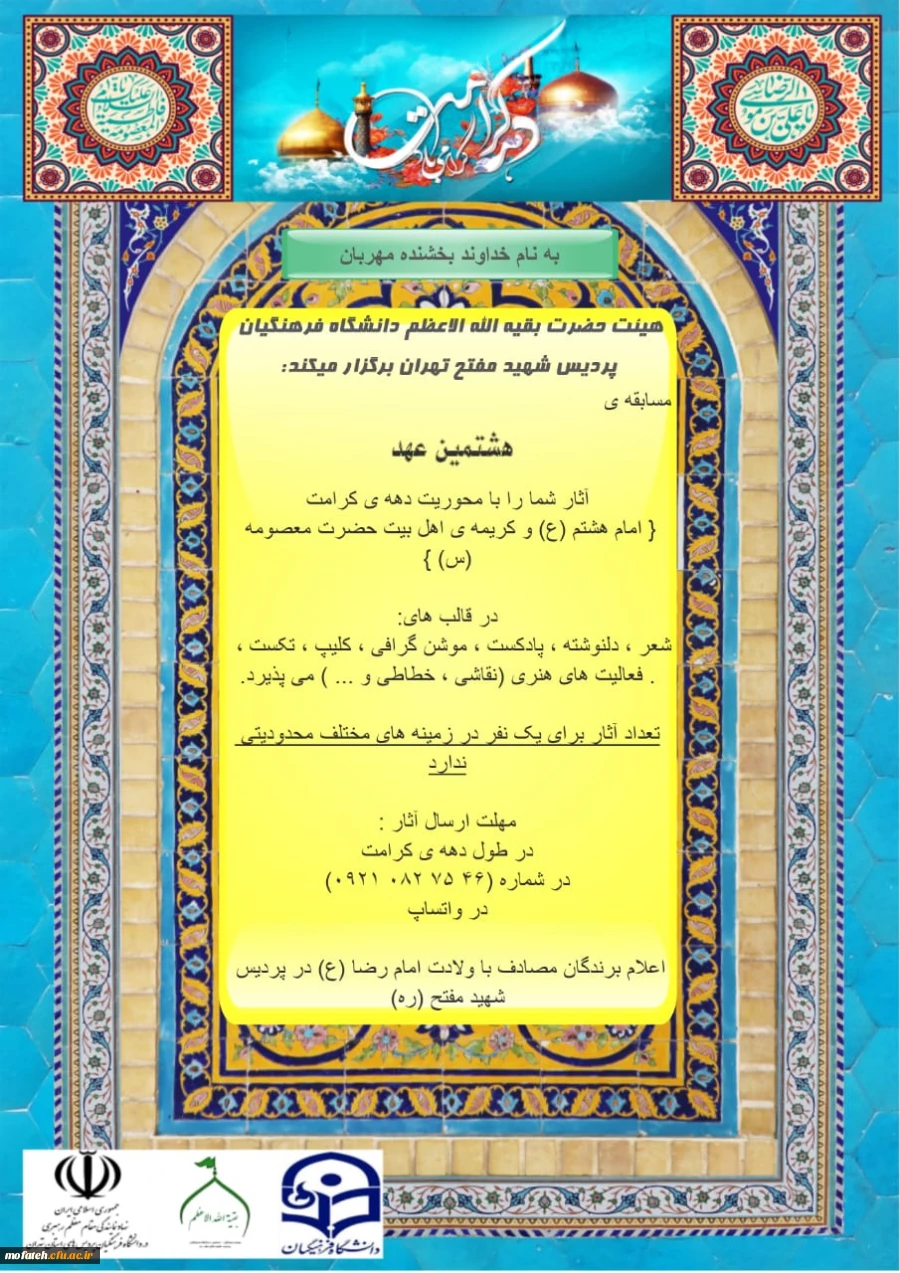 دهه کرامت
گرامی باد
به نام خداوند بخشنده مهربان
هیئت حضرت بقیه الله الاعظم دانشگاه فرهنگیان
پردیس شهید مفتح تهران برگزار میکند:
مسابقه ی
هشتمین عهد
آثار شما را با محوریت دهه ی کرامت
{ امام هشتم (ع) و کریمه ی اهل بیت حضرت معصومه
(س) }
در قالب های:
شعر ، دلنوشته ، پادکست ، موشن گرافی ، کلیپ ، تکست ،
فعالیت های هنری (نقاشی ، خطاطی و ... ) می پذیرد.
تعداد آثار برای یک نفر در زمینه های مختلف محدودیتی
ندارد
مهلت ارسال آثار :
در طول دهه ی کرامت
در شماره (۰۹۲۱ ۰۸۲ ۷۵ ۴۶)
در واتساپ
اعلام برندگان مصادف با ولادت امام رضا (ع) در پردیس
شهید مفتح (ره)
جمهوری اسلامی ایران
نهاد نمایندگی مقام معظم رهبری
بقیة الله الاعظم
دانشگاه فرهنگیان
mofateh.cfu.ac.ir